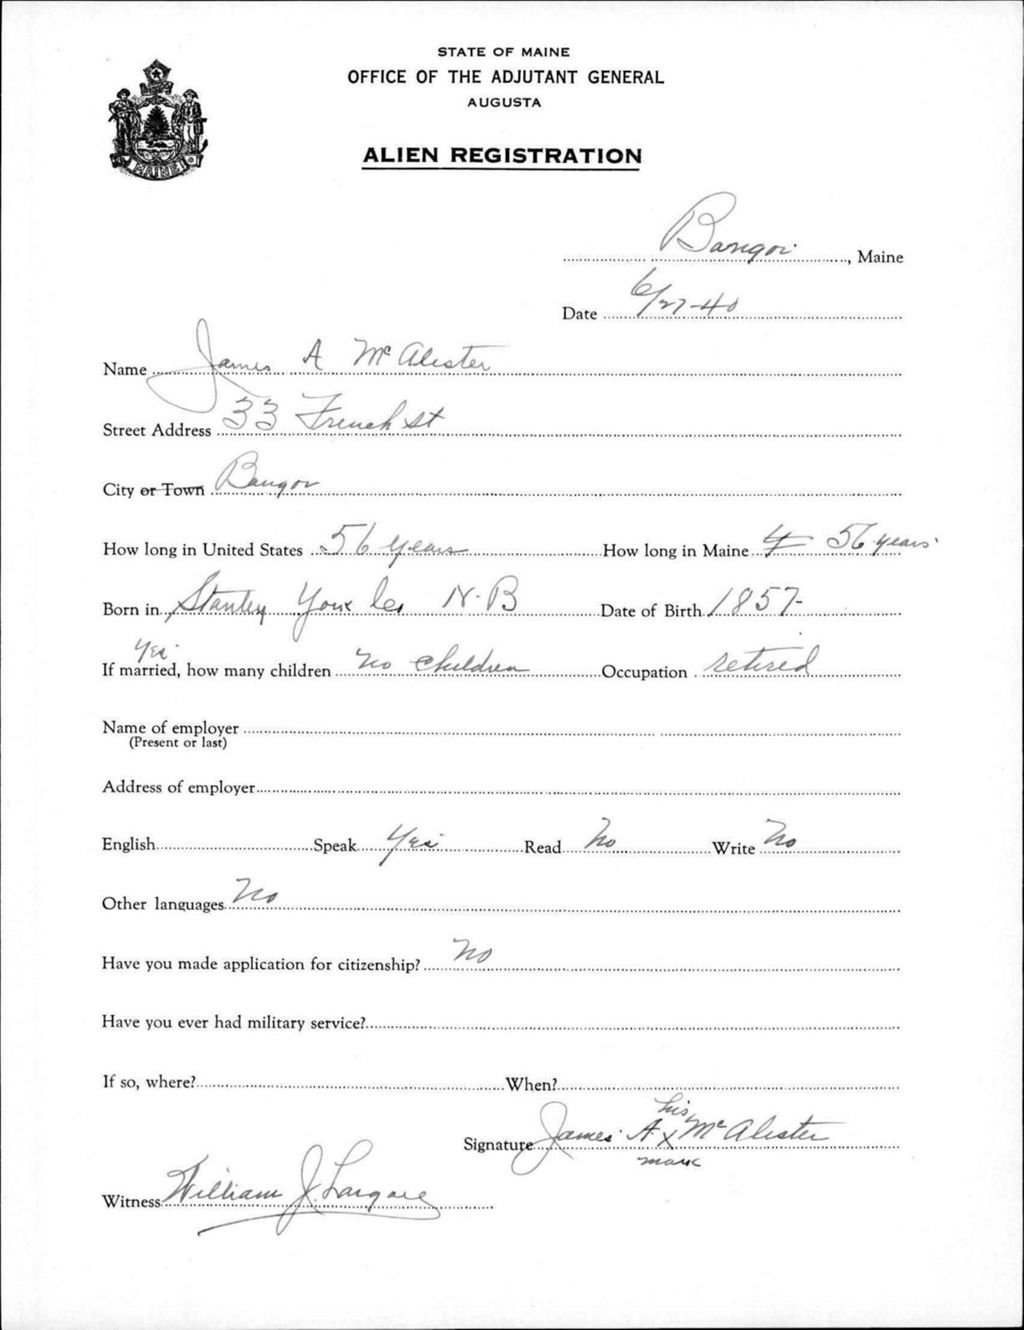 STATE OF MAINE
OFFICE OF THE ADJUTANT GENERAL
AUGUSTA
ALIEN REGISTRATION
MAINE
Bangor, Maine
Date 6/27-40
Name James A McAlister
Street Address 33 French St
City or Town Bangor
How long in United States 56 years How long in Maine 56 years.
Born in Stanley York Co N.B Date of Birth 1857-
Yes
If married, how many children no children Occupation retired
Name of employer
(Present or last)
Address of employer
English Speak Yes Read No Write No
Other languages No
Have you made application for citizenship? No
Have you ever had military service?
If so, where? When?
his
Signature James A. x McAlister
mark
Witness William J.